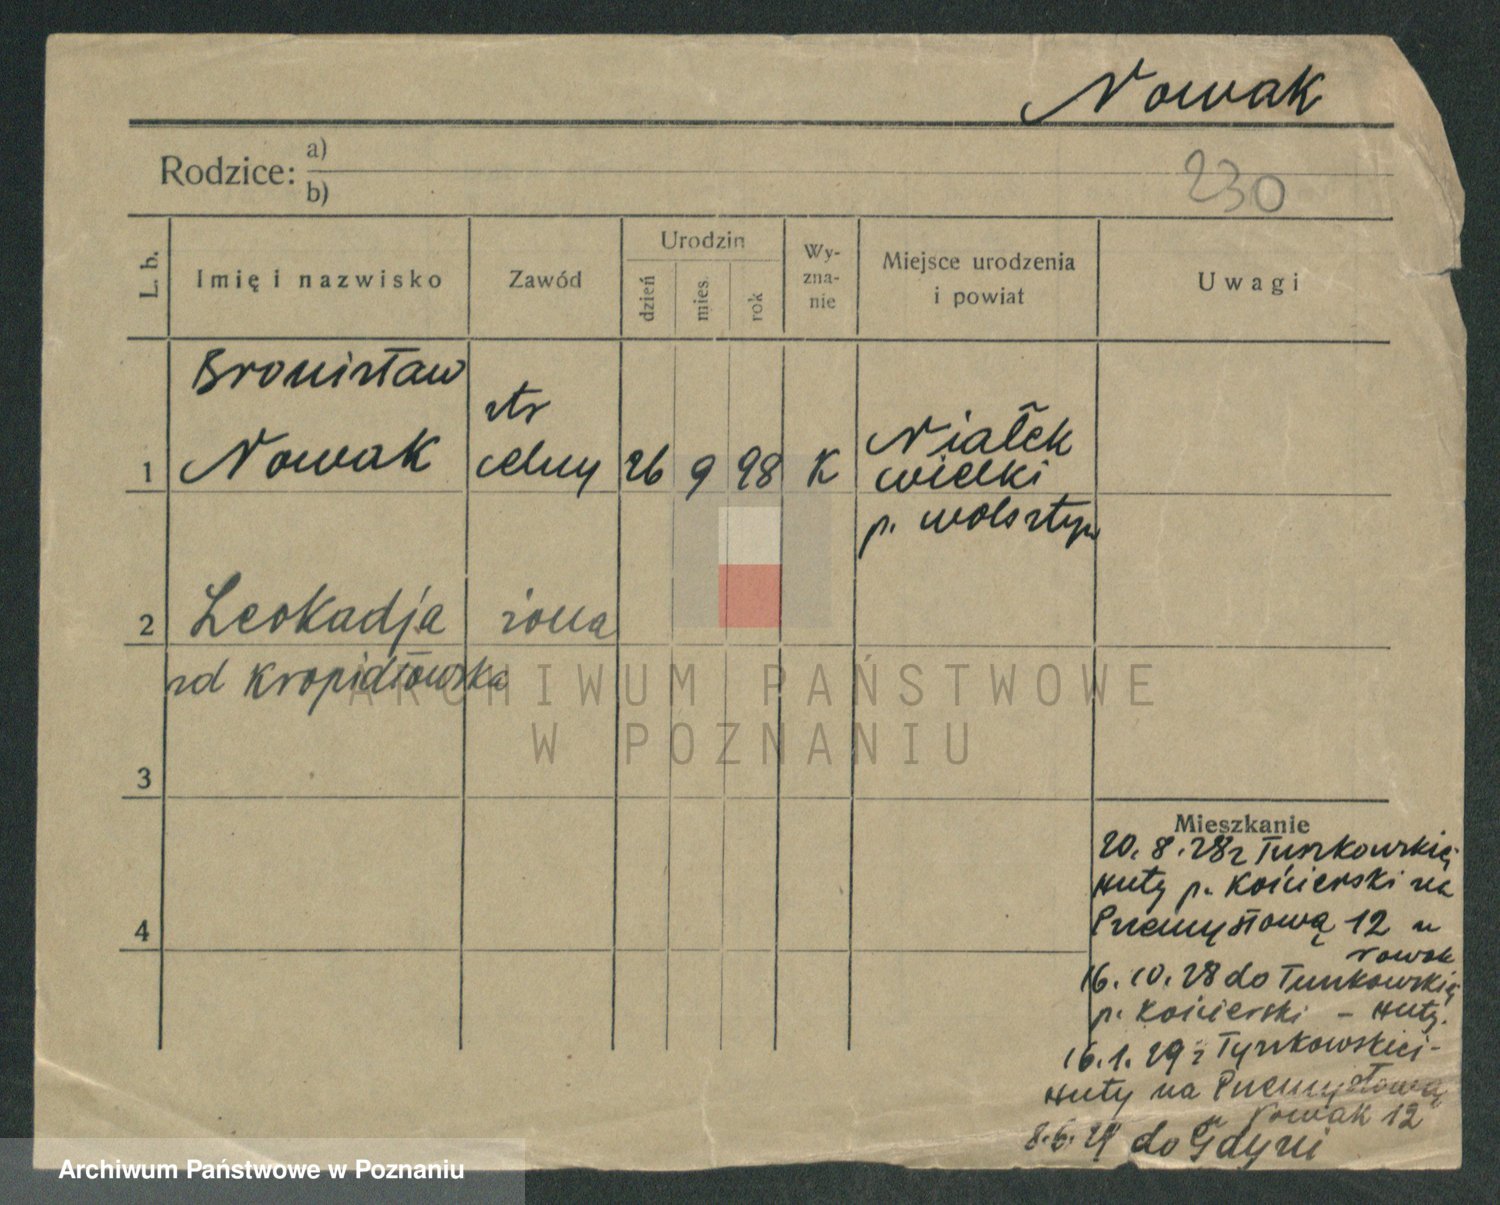 Nowak
Rodzice: a)
b)
230
L. b.
Imię i nazwisko
Zawód
Urodzin
dzień
mies.
rok
Wy-
zna-
nie
Miejsce urodzenia
i powiat
Uwagi
Bronisław
Nowak
1
26 9 98 K
Niałek
wielki
p. wolsztyn
2 Leokadja żona
Kropidłowska
3
4
Mieszkanie
20. 8. 28 z
Huty p. Kościerski na
Przemysłową 12 u
Nowak
16. 10. 28 do
p. Kościerski - Huty.
16. 1. 29 z
Huty na Przemysłową
u Nowak 12
do Gdyni
ARCHIWUM PAŃSTWOWE
W POZNANIU
Archiwum Państwowe w Poznaniu